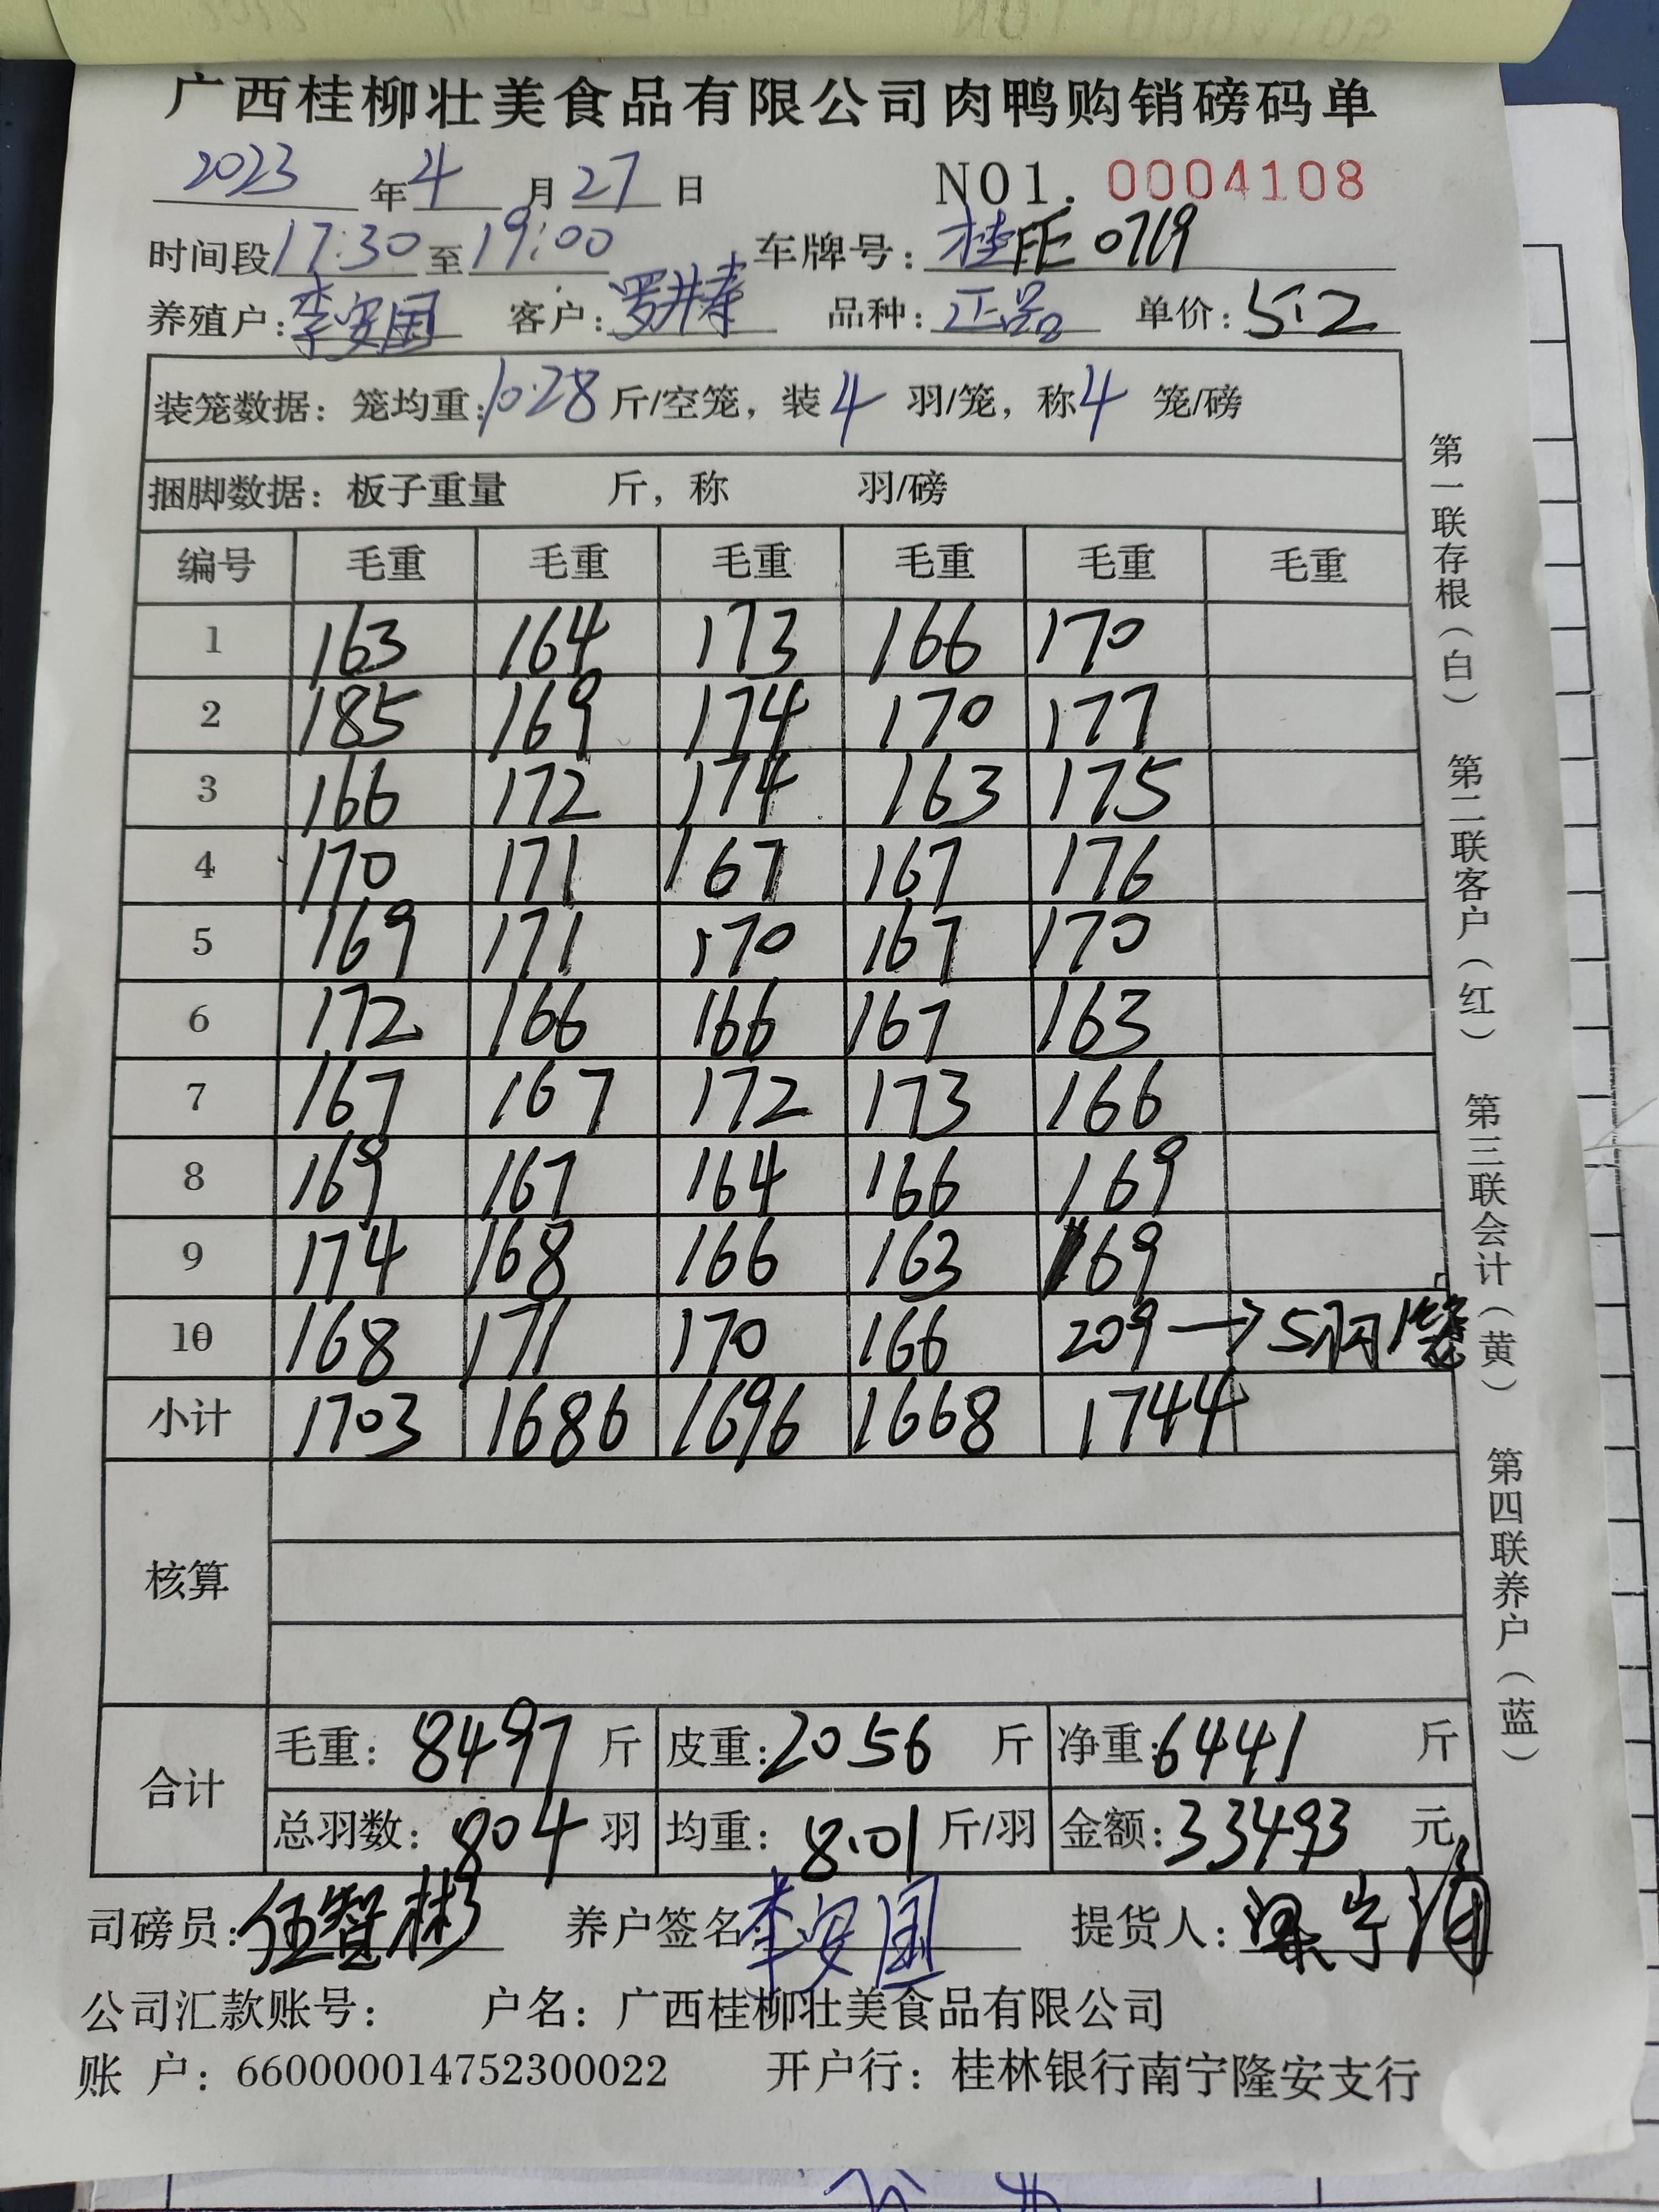 广西桂柳壮美食品有限公司肉鸭购销磅码单
2023 年 4 月 27 日 NO1. 0004108
时间段 17:30 至 19:00 车牌号: 桂 0719
养殖户: 李安国 客户: 罗 寿 品种: 正品 单价: 5.2
装笼数据: 笼均重: 10.28 斤/空笼, 装 4 羽/笼, 称 4 笼/磅
捆脚数据: 板子重量 斤, 称 羽/磅
编号 毛重 毛重 毛重 毛重 毛重 毛重
1 163 164 173 166 170
2 185 169 174 170 177
3 166 172 174 163 175
4 170 171 167 167 176
5 169 171 170 167 170
6 172 166 166 167 163
7 167 167 172 173 166
8 169 167 164 166 169
9 174 168 166 163 169
10 168 171 170 166 209 → 5 羽 1笼
小计 1703 1686 1696 1668 1744
核算
合计 毛重: 8497 斤 皮重: 2056 斤 净重: 6441 斤
总羽数: 804 羽 均重: 8.01 斤/羽 金额: 33493 元
司磅员: 伍智彬 养户签名: 李安国 提货人: 梁宁
公司汇款账号: 户名: 广西桂柳壮美食品有限公司
账 户: 660000014752300022 开户行: 桂林银行南宁隆安支行
第一联存根(白) 第二联客户(红) 第三联会计(黄) 第四联养户(蓝)